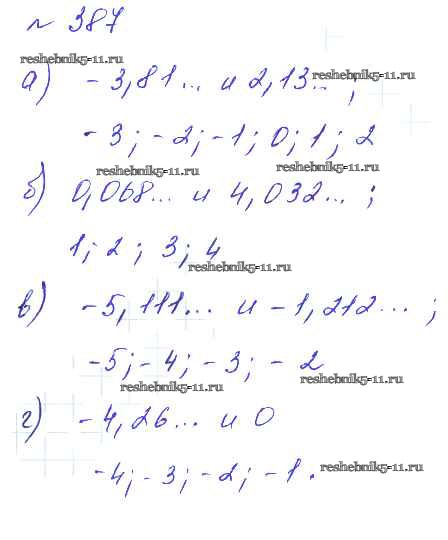 № 387
reshebnik5-11.ru
а) -3,81... и 2,13... ;
reshebnik5-11.ru
-3; -2; -1; 0; 1; 2
reshebnik5-11.ru reshebnik5-11.ru
б) 0,068... и 4,032... ;
1; 2; 3; 4
reshebnik5-11.ru
в) -5,111... и -1,212... ;
-5; -4; -3; -2
reshebnik5-11.ru reshebnik5-11.ru
г) -4,26... и 0
-4; -3; -2; -1.
reshebnik5-11.ru